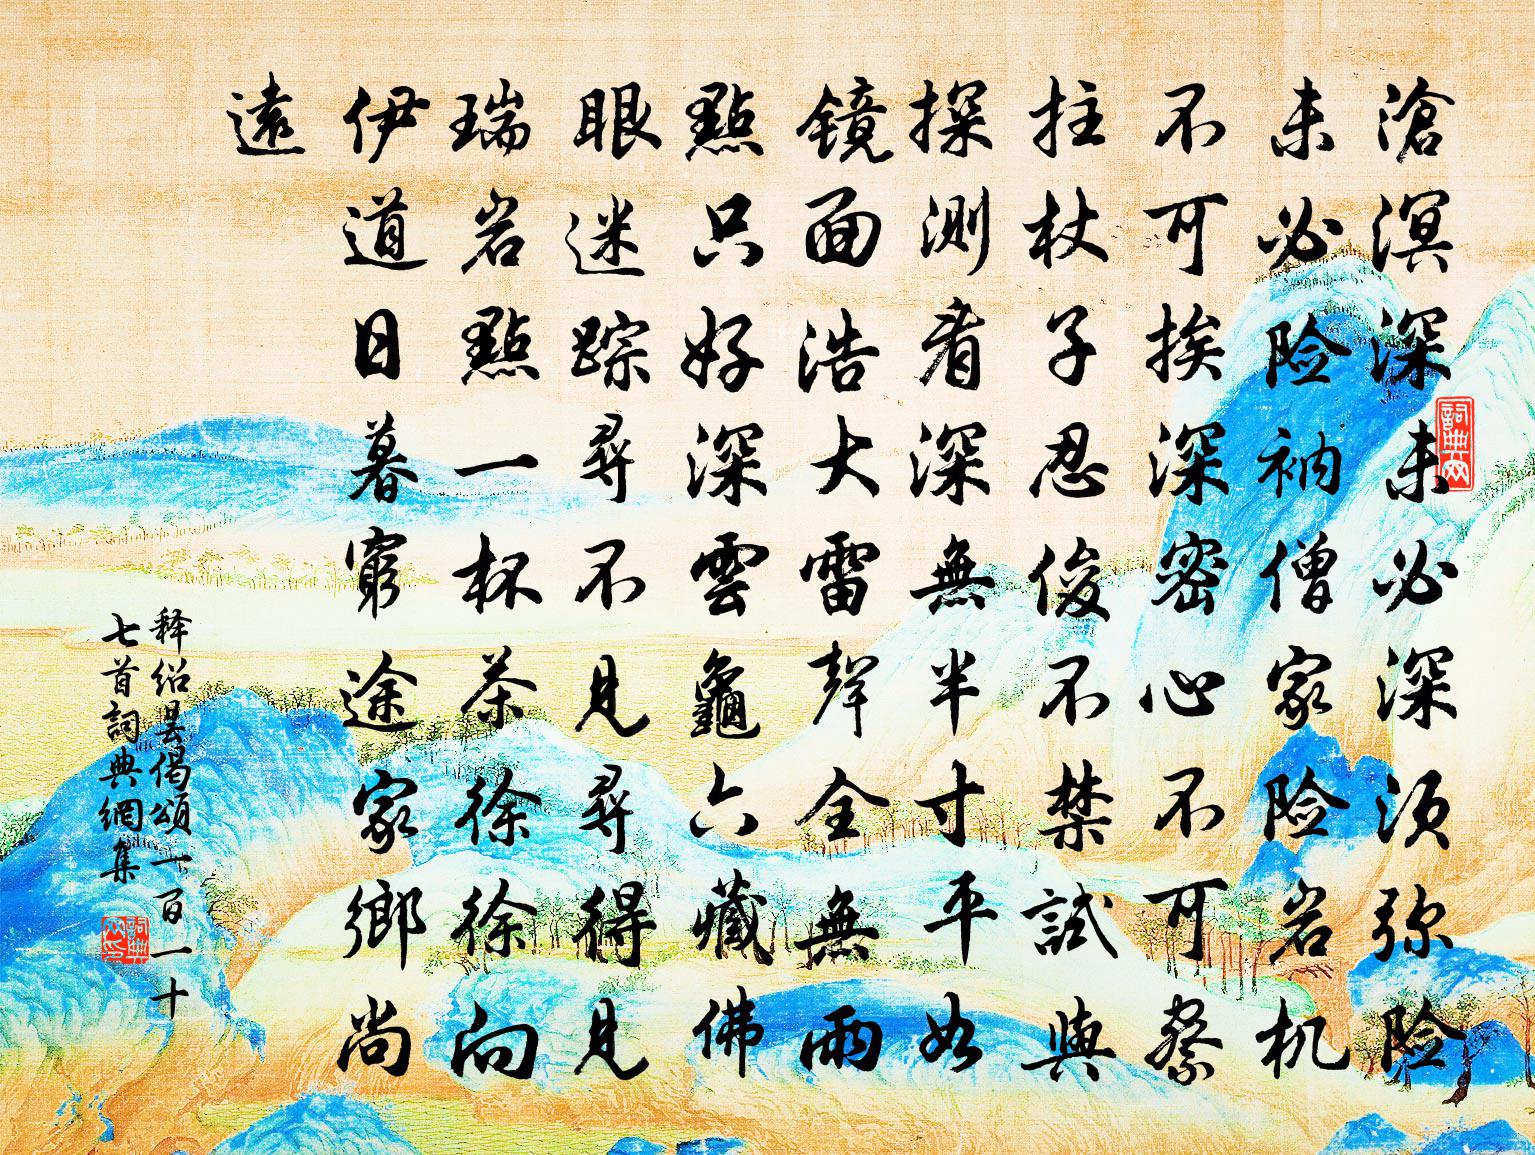 滄溟深未必深須弥险
未必险衲僧家险岩机
不可挨深密心不可察
拄杖子忍俊不禁試與
探測看深無半寸平如
鏡面浩大雷聲全無雨
點只好深雲龜六藏佛
眼迷踪尋不見尋得見
瑞岩點一杯茶徐徐向
伊道日暮窮途家鄉尚
遠
释绍昙偈頌一百一十
七首詞典網集
詞典网